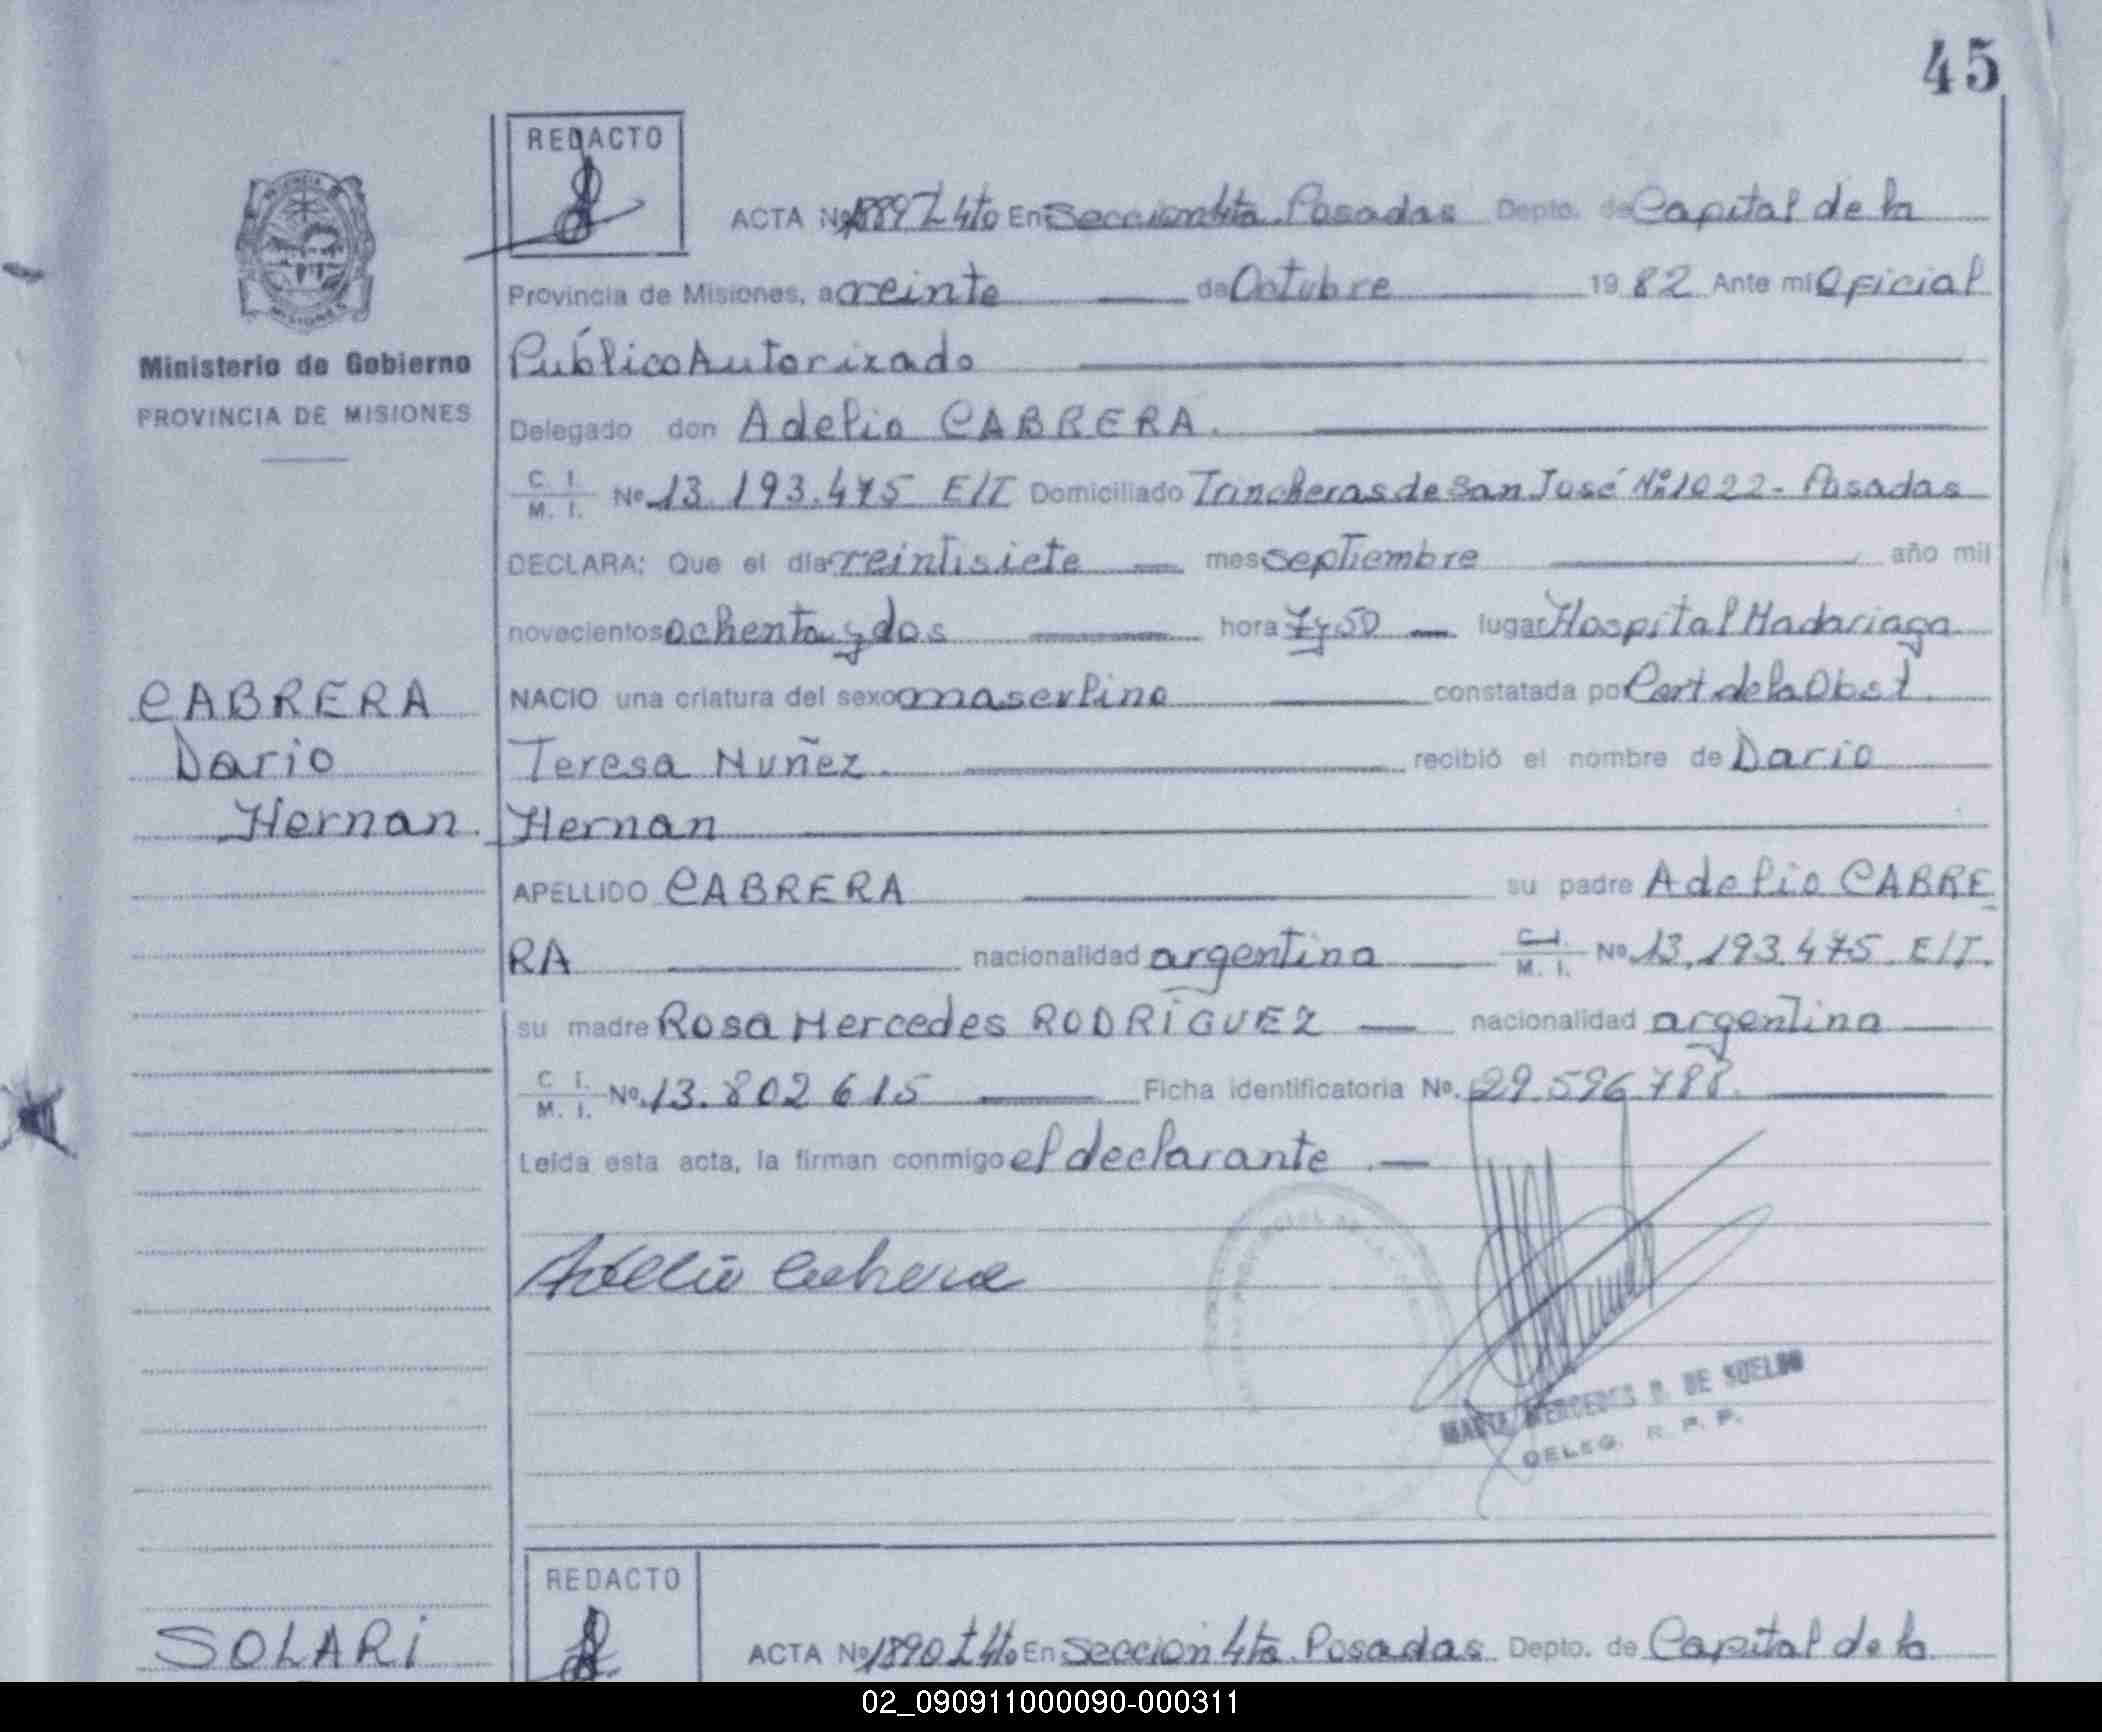 45
REDACTO
ACTA Nº 1889 T 4to En Seccion 4ta Posadas Depto. de Capital de la
Provincia de Misiones, a veinte de Octubre 1982 Ante mi Oficial
Ministerio de Gobierno
PROVINCIA DE MISIONES
Público Autorizado
Delegado don Adelio CABRERA.
C. I.
M. I. Nº 13.193.475 E/T Domiciliado Trincheras de San José Nº 1022 - Posadas
DECLARA: Que el dia veintisiete mes septiembre año mil
novecientos ochenta y dos hora 7 y 50 lugar Hospital Madariaga
CABRERA
Dario
Hernan.
NACIO una criatura del sexo masculino constatada por Cert. de la Obst.
Teresa Nuñez. recibió el nombre de Dario
Hernan
APELLIDO CABRERA su padre Adelio CABRE
RA nacionalidad argentina C. I. M. I. Nº 13.193.475. E/T.
su madre Rosa Mercedes RODRÍGUEZ nacionalidad argentina
C. I.
M. I. Nº 13.802615 Ficha identificatoria Nº. 29.596.788.
Leída esta acta, la firman conmigo el declarante
Adelio Cabrera
MERCEDES DE SUELDO
DELEG. R. P. P.
REDACTO
SOLARI
ACTA Nº 1890 T 4to En Seccion 4ta. Posadas Depto. de Capital de la
02_090911000090-000311